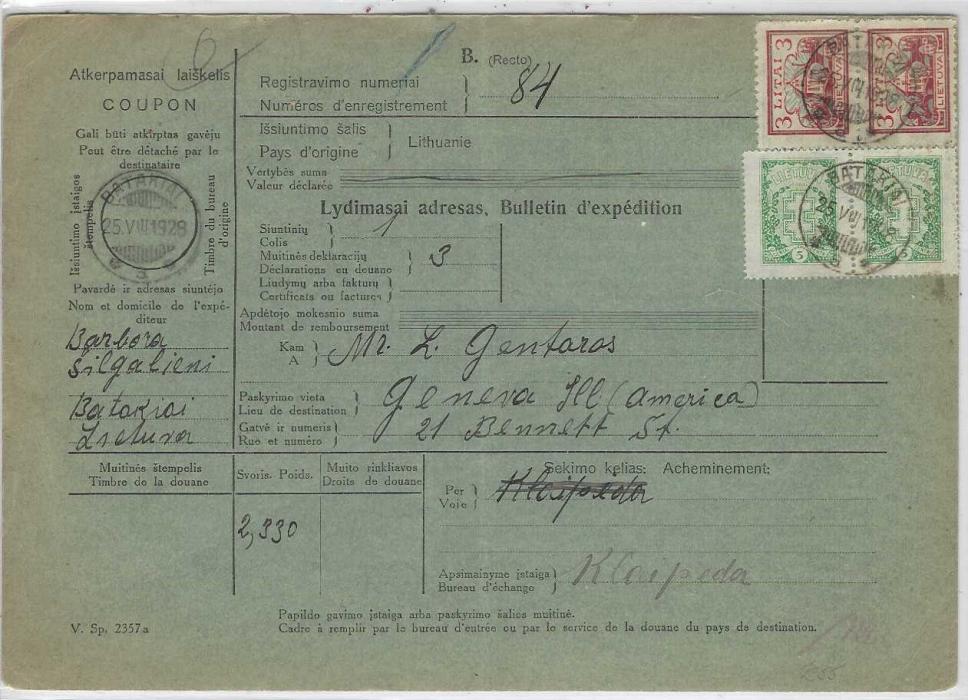 6
Atkerpamasai laiškelis
COUPON
Gali būti atkirptas gavėju
Peut être détaché par le
destinataire
Išsiuntimo įstaigos
štempelis
BATAKIAI
25.VIII.1928
Timbre du bureau
d'origine
Pavardė ir adresas siuntėjo
Nom et domicile de l'expé-
diteur
Barbora
Šilgalieni
Batakiai
Lietuva
B. (Recto)
Registravimo numeriai
Numéros d'enregistrement
84
Išsiuntimo šalis
Pays d'origine
Lithuanie
Vertybės suma
Valeur déclarée
Lydimasai adresas, Bulletin d'expédition
Siuntinių
Colis
1
Muitinės deklaracijų
Déclarations en douane
3
Liudymų arba fakturų
Certificats ou factures
Apdėtojo mokesnio suma
Montant de remboursement
Kam
A
Mr. L. Gentoros
Paskyrimo vieta
Lieu de destination
Geneva Ill (America)
Gatvė ir numeris
Rue et numéro
21 Bennett St.
3 LITAI 3
LIETUVA
BATAKIAI
25.VIII.1928
5
5
Muitinės štempelis
Timbre de la douane
Svoris. Poids.
Muito rinkliavos
Droits de douane
2,330
Sekimo kelias: Acheminement:
Per
Voie
Klaipeda
Apsimainymo įstaiga
Bureau d'échange
Klaipeda
Papildo gavimo įstaiga arba paskyrimo šalies muitinė.
Cadre à remplir par le bureau d'entrée ou par le service de la douane du pays de destination.
V. Sp. 2357a